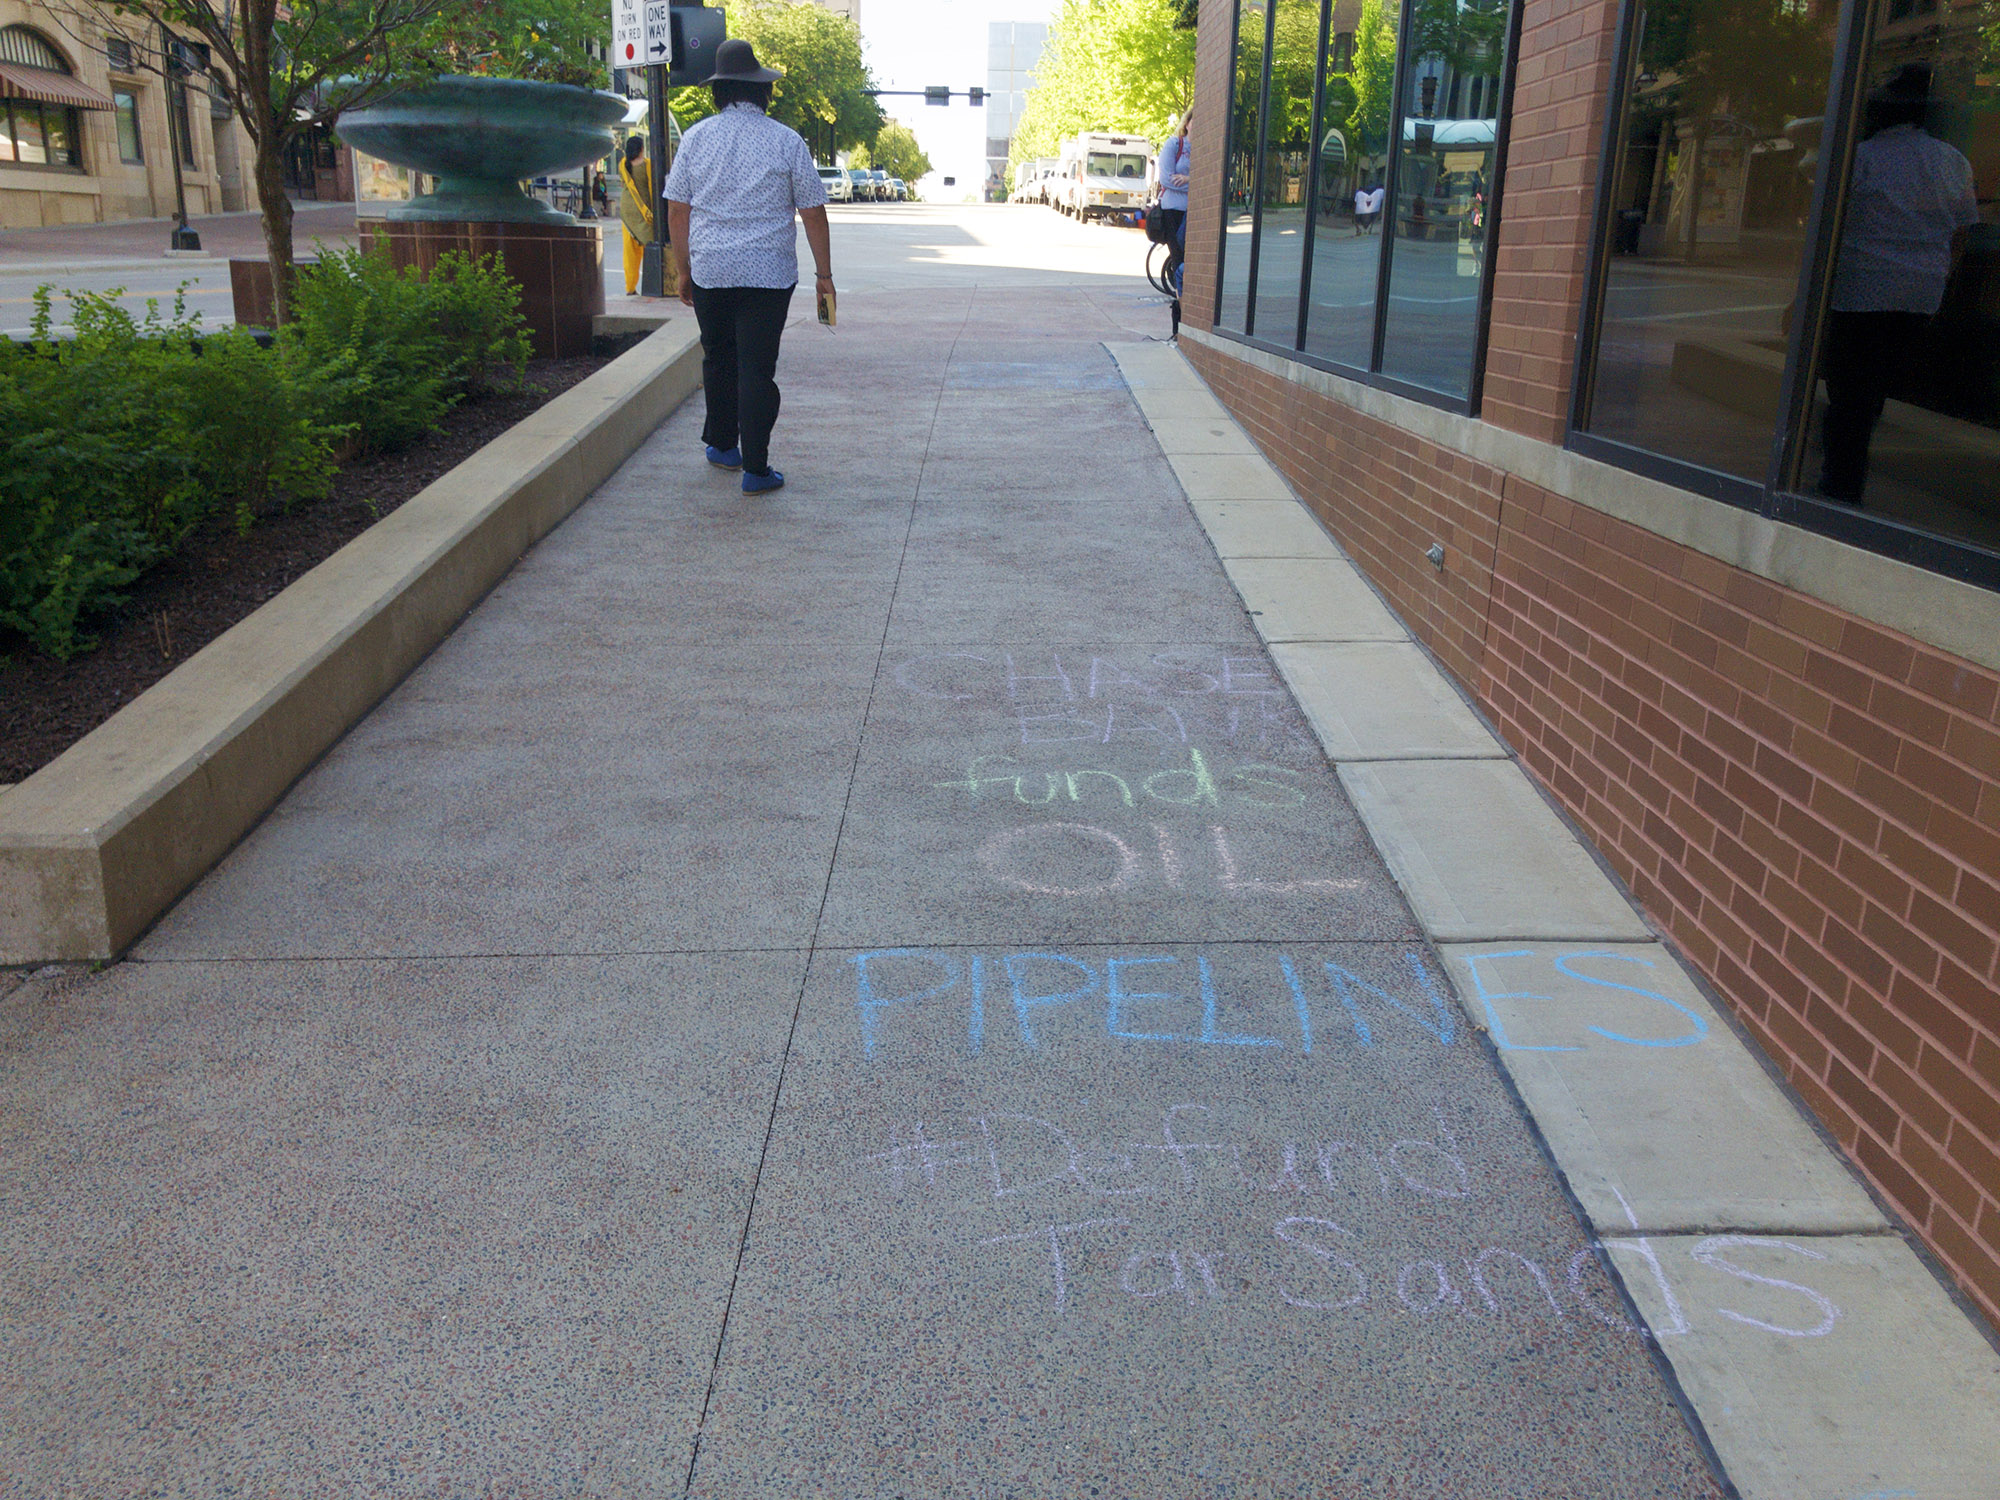 NO
TURN
ON RED
ONE
WAY
CHASE
BANK
funds
OIL
PIPELINES
#Defund
Tar Sands